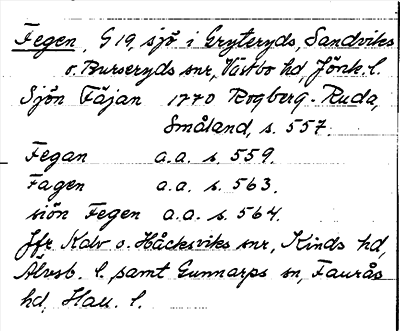 Fegen, G19, sjö i Gryteryds, Sandviks
o. Burseryds snr, Västbo hd, Jönk. l.
Sjön Fäjan 1770 Rogberg-Ruda,
Småland, s. 557.
Fegan a.a. s. 559.
Fagen a.a. s. 563.
siön Fegen a.a. s. 564.
Jfr Kalv o. Håcksviks snr, Kinds hd,
Älvsb. l. samt Gunnarps sn, Faurås
hd, Hall. l.